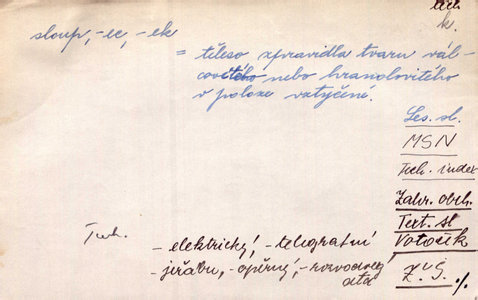 tech.
k.
sloup, -ec, -ek
= těleso zpravidla tvaru vál-
covitého nebo hranolovitého
v poloze vztyčené.
Les. sl.
MSN
Tech. index
Zahr. obch.
Text. sl
Votoček
Z.V.Š. ./.
Tech.
- elektrický, - telegrafní
- jeřábu, - opěrný, - rozvodový
atd